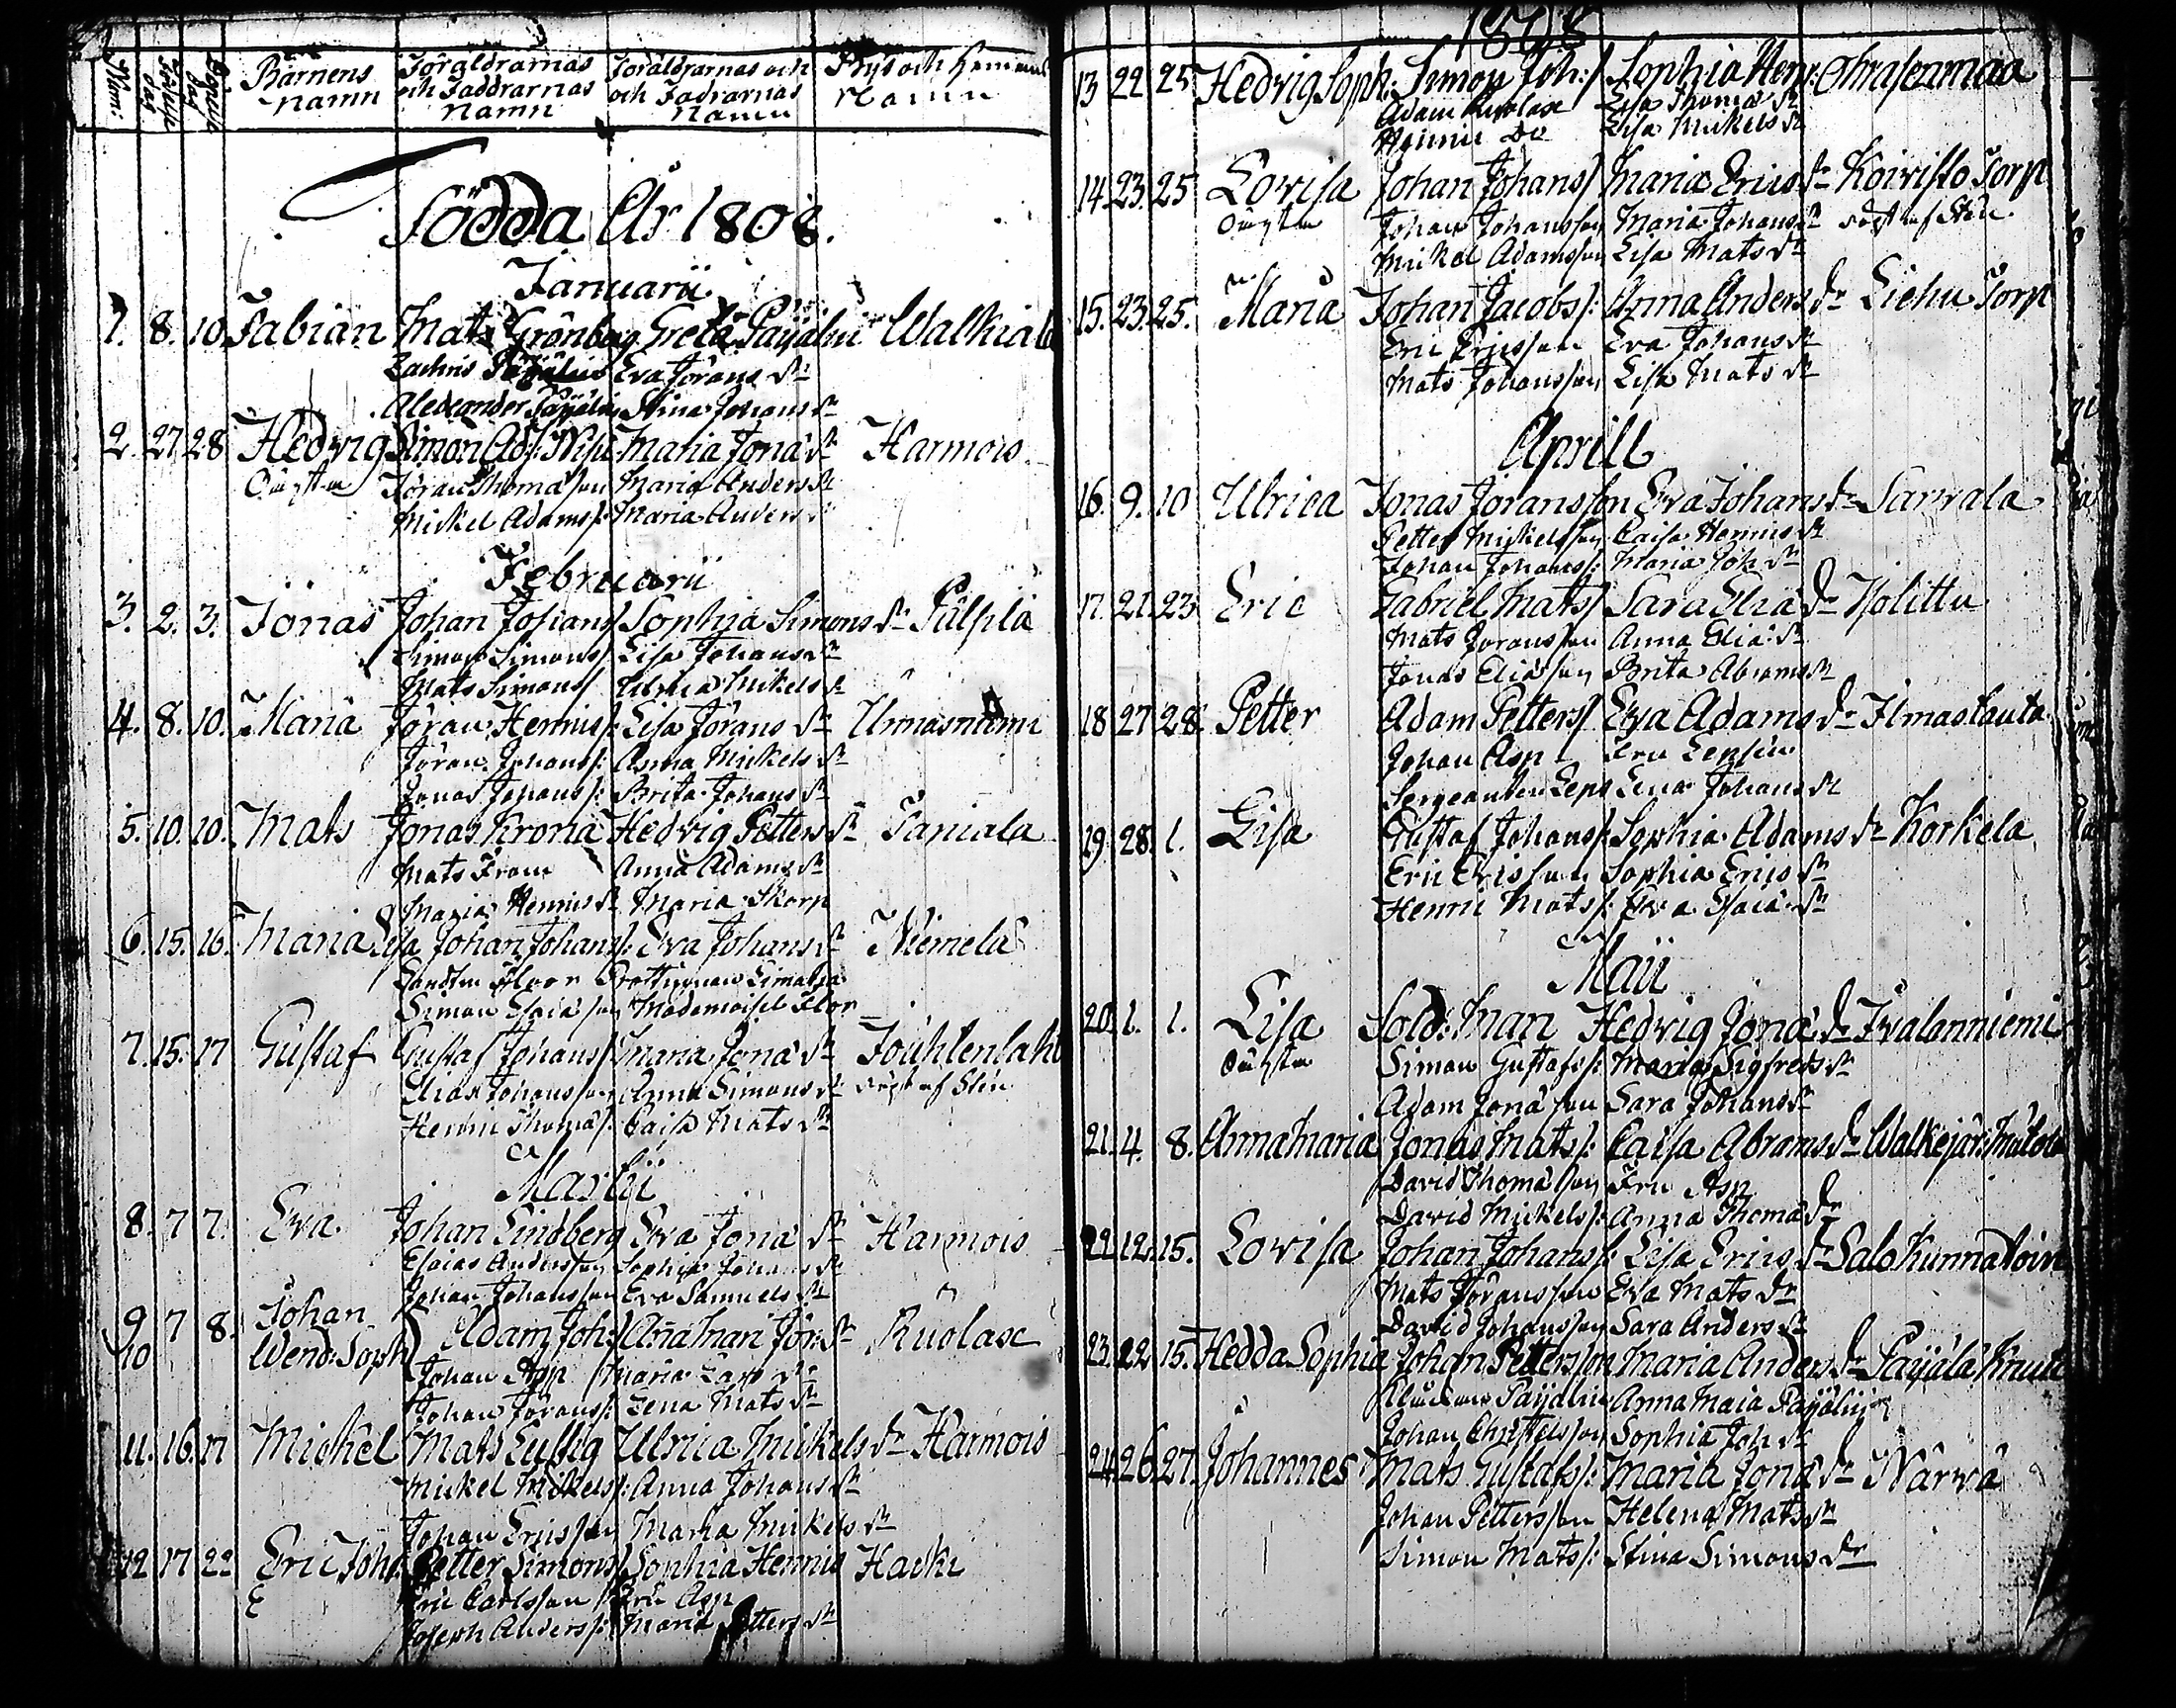 Num: Födelse Dag Döpelse Dag Barnens Namn Föräldrarnas och Faddrarnas Namn Föräldrarnas och Fadrarnas Namn Bys och Hemmans Namn
Födda År 1808.
Januarii
1. 8. 10. Fabian Mats Grönberg Greta Paijalin Walkiala
Zachris Eva Jörans dr
Alexander Paijalin Stina Johans dr
2. 27 28 Hedvig Simon Ad: Maria Jona dr Harmois
Oäkta Jöran Thomasson Maria Anders dr
Mickel Adams/: Maria Anders
Februarii
3. 2. 3. Jonas Johan Johans/ Sophia Simons dr Pälpilä
Simon Simons/ Lisa Johans dr
Mats Simons/ Mickels dr
4. 8. 10. Maria Jöran Hennis/: Lisa Jörans dr
Jöran Johans/: Anna Mickels dr
Jonas Johans/: Brita Johans dr
5. 10. 10. Mats Jonas Krona Hedvig Petters dr Paniala
Mats From Anna Adams dr
Maria Hennis dr Maria Skorp
6. 15. 16. Maria Lisa Johan Johans/: Eva Johans dr Niemelä
Floor
Simon Esaiasson Mademoisel Flor
7. 15. 17 Gustaf Gustaf Johans/: Maria Jona dr
Elias Johansson Anna Simons dr
Henric Thomas/: Caisa Mats dr
Martii
8. 7 7. Eva Johan Lindberg Eva Jona dr Harmois
Esaias Andersson Sophia Johans dr
Johan Johansson Eva Samuels dr
9 7 8. Johan
10 Wend: Soph Adam Joh:/ Aña Mari Jör: dr Ruolax
Johan Asp Maria Lars dr
Johan Jörans/: Lena Mats dr
11. 16. 17 Michel Mats Lustig Ulrica Mickels dr Harmois
Mickel Mickels/: Anna Johans dr
Johan Ericsson Maria Mickels dr
12 17 22 Eric Joha Petter Simons/ Sophia Hennis Hacki
Eric Carlsson Fru Asp
Joseph Anders/: Maria Petters dr
1808
13 22 25 Hedvig Soph: Simon Joh:/ Sophia Henr: Ohrasenmaa
Adam Ruolax Lisa Thoma dr
Hennric Do Lisa Mickels dr
14. 23. 25 Lovisa Johan Johans/ Maria Erics dr Koivisto Torp
Oäkta Johan Johansson Maria Johans dr
Mickel Adamsson Lisa Mats dr
15. 23. 25. Maria Johan Jacobs/: Anna Anders dr Liehu Torp
Eric Ericsson Eva Johans dr
Mats Johansson Lisa Mats dr
Aprill
16. 9. 10 Ulrica Jonas Jöransson Eva Johans dr Sarvala
Petter Mickelsson Caisa Hennis dr
Johan Johans/: Maria Joh dr
17. 21. 23 Eric Gabriel Mats/ Sara Elia dr Kolittu
Mats Jöransson Anna Elia dr
Jonas Eliasson Brita Abrams dr
18 27 28. Petter Adam Petters/ Eva Adams dr Ilmastauta
Johan Asp Fru
Sergeanten Lena Johans dr
19. 28. 1. Lisa Gustaf Johans/: Sophia Adams dr Korkela
Eric Ericsson Sophia Erics dr
Henric Mats/: Eva Esaia dr
Maii
20. 1. 1. Lisa Sold: Man Hedvig Jona dr Ivalanniemi
Oäkta Simon Gustafs/: Maria Sigfreds dr
Adam Jonasson Sara Johans dr
21. 4. 8. Anna Maria Jonas Mats/: Caisa Abrams dr Walkejär: Mätola
David Thomasson Fru Asp
David Mickels/: Anna Thoma dr
22. 12. 15. Lovisa Johan Johans/: Lisa Erics dr Salo
Mats Jöransson Eva Mats dr
David Johansson Sara Anders dr
23. 12 15. Hedda Sophia Johan Pettersson Maria Anders dr Paijala Knuti
Paijalin Anna Maia Paijalin
Johan Christersson Sophia Joh dr
24. 26. 27. Johannes Mats Gustafs/: Maria Jona dr Närvä
Johan Pettersson Helena Mats dr
Simon Mats/: Stina Simons dr